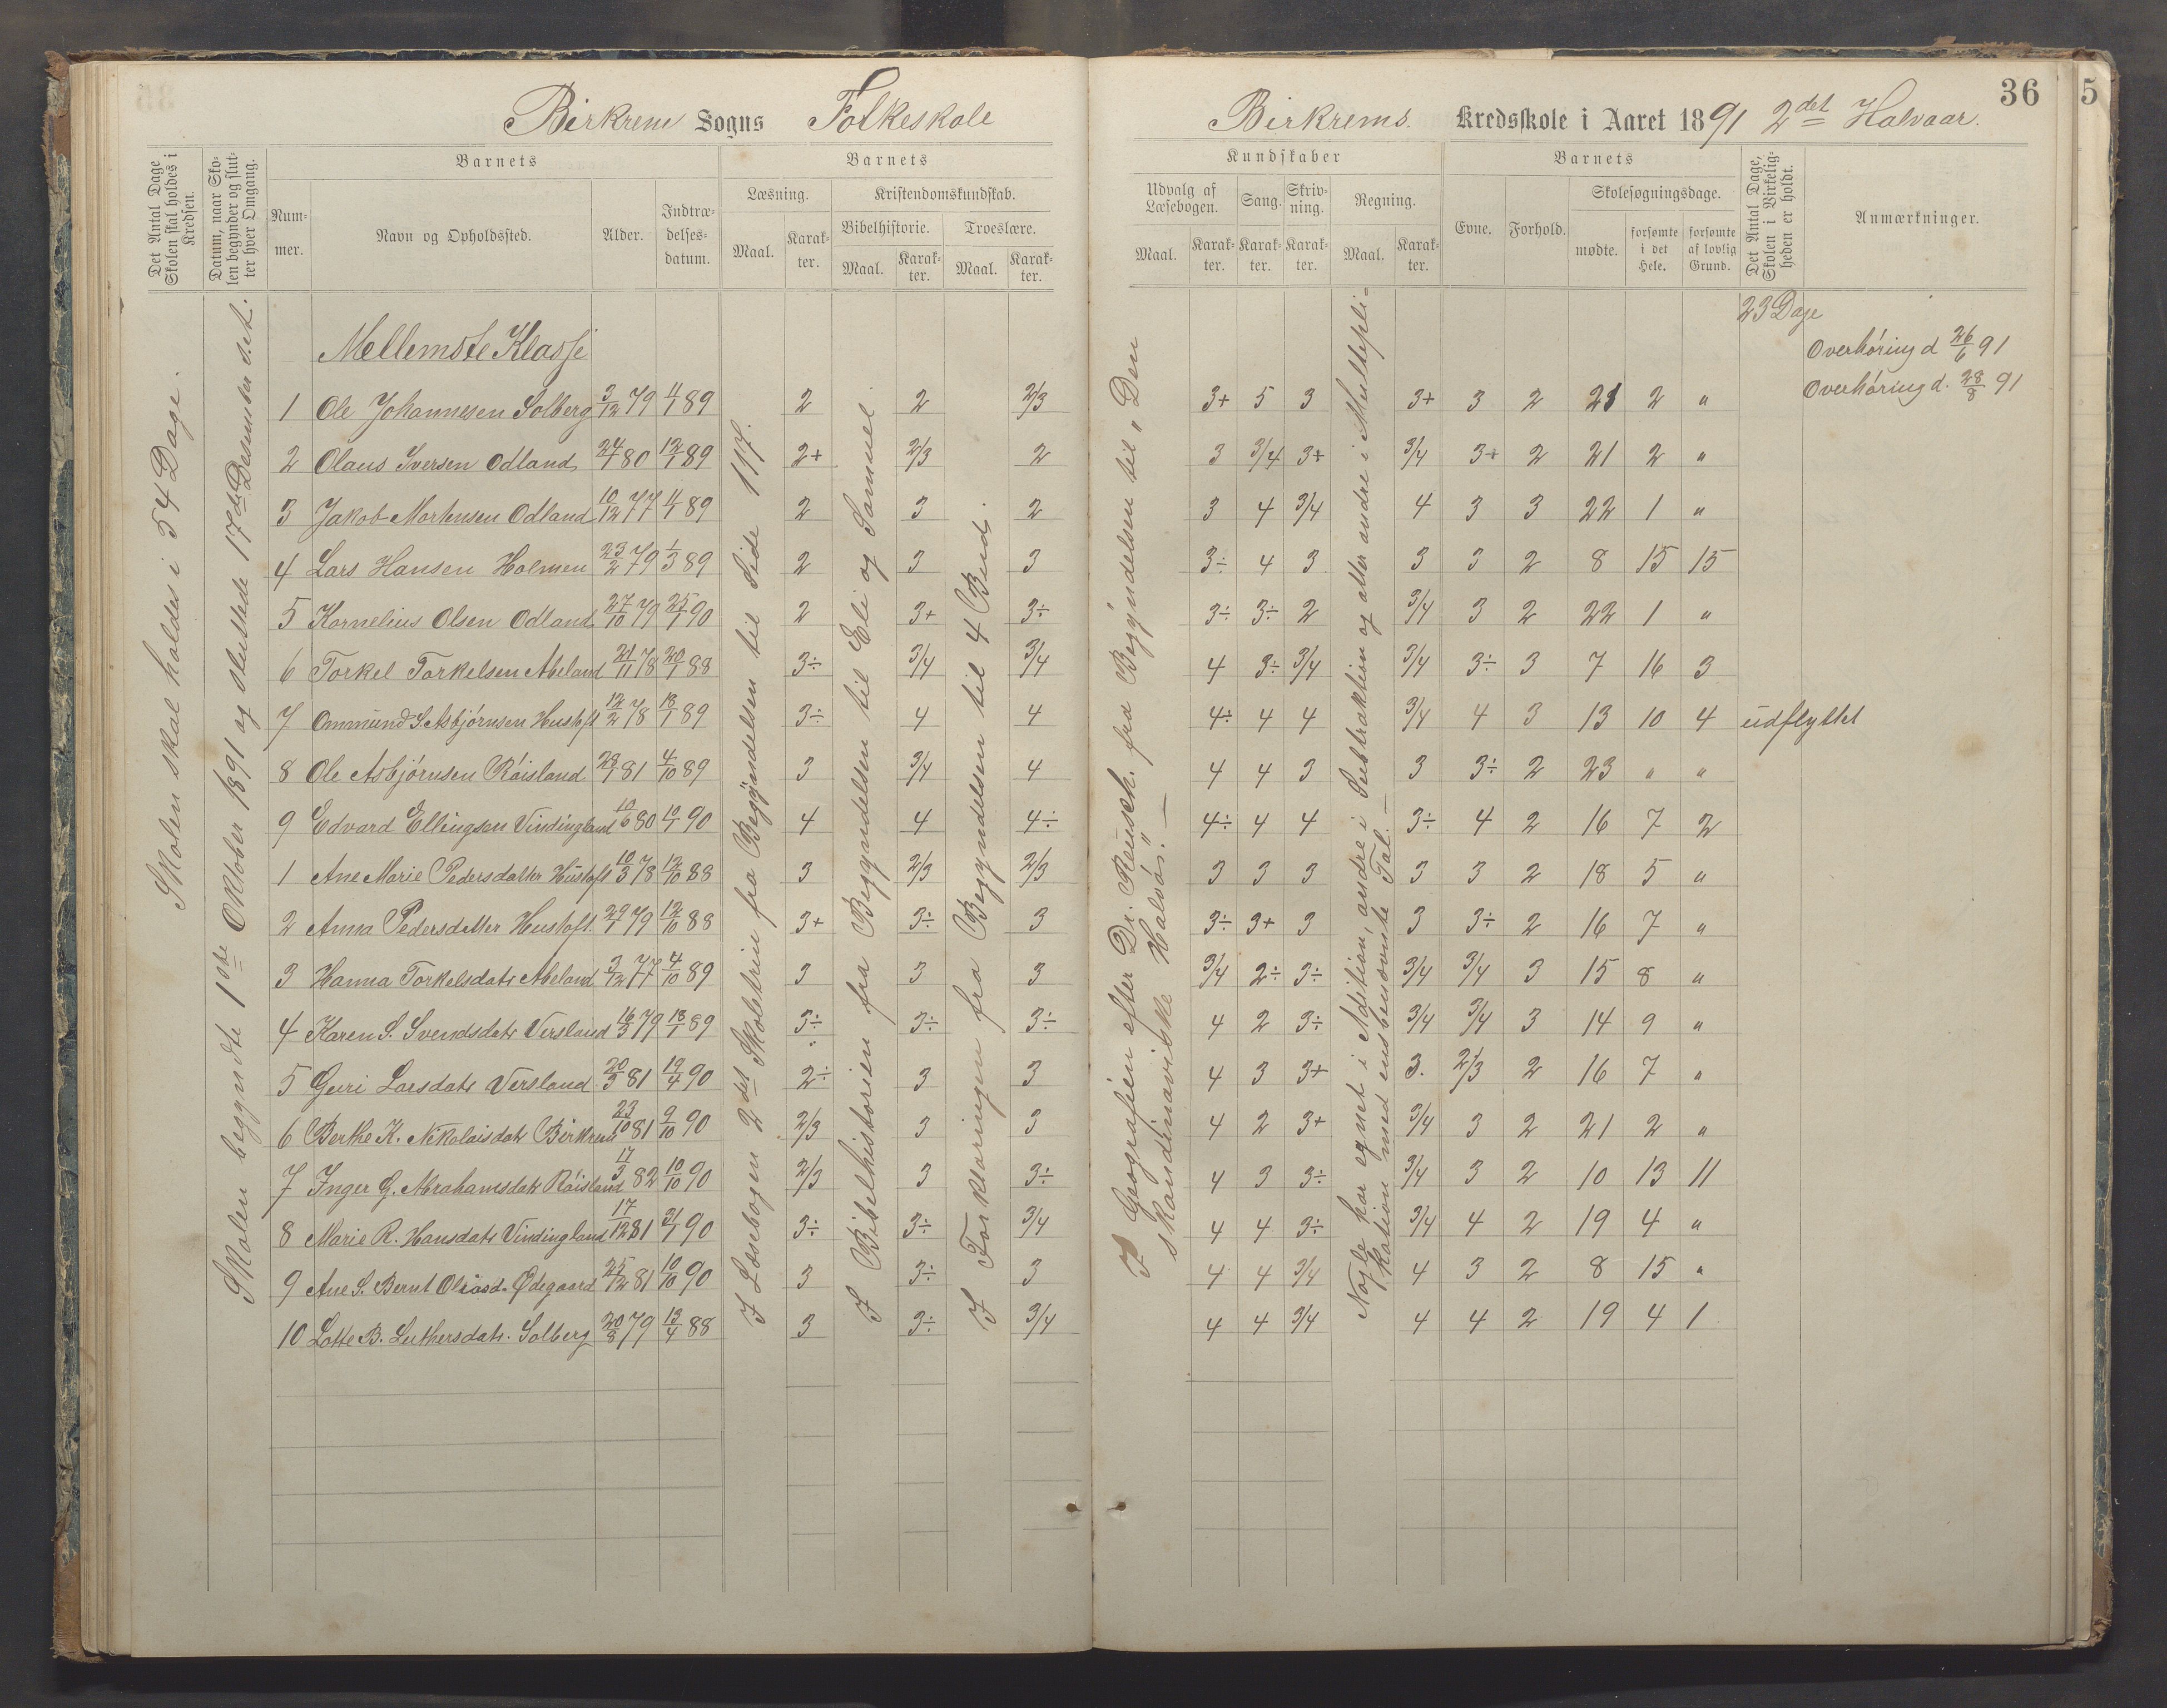 Birkrem Sogns Folkeskole
Det Antal Dage Skolen skal holdes i Kredsen.
Datum, naar Skolen begynder og slutter hver Omgang.
Barnets
Nummer.
Navn og Opholdssted.
Alder.
Indtrædelsesdatum.
Barnets
Læsning.
Kristendomskundskab.
Bibelhistorie.
Troeslære.
Maal.
Karakter.
Maal.
Karakter.
Maal.
Karakter.
Skolen skal holdes i 54 Dage.
Skolen begyndte 1ste Oktober 1891 og sluttede 17de Desember s.st.
I Læsebogen 2det Skoletrin fra Begyndelsen til Side 117.
I Bibelhistorien fra Begyndelsen til Eli og Samuel
I Forklaringen fra Begyndelsen til 4 Bud.
Mellemste Klasse
1 Ole Johannesen Solberg 3/12 79 4/1 89 2 2 2/3
2 Olaus Iversen Odland 24/7 80 12/1 89 2+ 2/3 2
3 Jakob Mortensen Odland 10/12 77 4/1 89 2 3 2
4 Lars Hansen Holmen 23/2 79 1/3 89 2 3 3
5 Kornelius Olsen Odland 27/10 79 25/1 90 2 3+ 3÷
6 Torkel Torkelsen Abeland 21/11 78 20/1 88 3÷ 3/4 3/4
7 Ommund S. Asbjørnsen Hustoft 12/2 78 18/1 89 3÷ 4 4
8 Ole Asbjørnsen Røisland 28/1 81 4/10 89 3 3/4 4
9 Edvard Ellingsen Vindingland 10/6 80 10/1 90 4 4 4÷
1 Ane Marie Pedersdatter Hustoft 10/3 78 12/10 88 3 2/3 2/3
2 Anna Pedersdatter Hustoft. 29/7 79 12/10 88 3+ 3÷ 3
3 Hanna Torkelsdatr Abeland 3/12 77 4/10 89 3 3 3
4 Karen S. Svendsdatr Versland 16/3 79 18/1 89 3÷ 3÷ 3÷
5 Guri Larsdatr Versland 20/3 81 19/4 90 2÷ 3 3
6 Berthe K. Nikolaisdatr Birkrem 23/10 81 9/10 90 2/3 3 3
7 Inger G. Abrahamsdatr Røisland 17/3 82 10/10 90 2/3 3 3÷
8 Marie R. Hansdatr Vindingland 17/12 81 31/1 90 3÷ 3÷ 3/4
9 Ane S. Bernt Olsasd. Ødegaard 25/12 81 10/10 90 3 3÷ 3
10 Lotte B. Luthersdatr. Solberg 20/8 79 13/4 88 3 3÷ 3/4
36
5
Birkrems. Kredsskole i Aaret 1891 2det Halvaar.
Kundskaber
Udvalg af Læsebogen.
Sang.
Skrivning.
Regning.
Maal.
Karakter.
Karakter.
Karakter.
Maal.
Karakter.
Barnets
Evne.
Forhold.
Skolesøgningsdage.
mødte.
forsømte i det Hele.
forsømte af lovlig Grund.
Det Antal Dage, Skolen i Virkeligheden er holdt.
Anmærkninger.
I Geografien efter Dr. Reusch. fra Begyndelsen til "Den
skandinaviske Halvø". —
Nogle har regnet i Adition, andre i Subtraktion og atter andre i Multipli-
kation med ensbenævnte Tal. —
23 Dage
Overhøring d 26/6 91
Overhøring d. 28/8 91
3+ 5 3 3+ 3 2 21 2 "
3 3/4 3+ 3/4 3+ 2 21 2 "
3 4 3/4 4 3 3 22 1 "
3÷ 4 3 3 3 2 8 15 15
3÷ 3÷ 2 3/4 3 2 22 1 "
4 3÷ 3/4 3/4 3÷ 3 7 16 3
4÷ 4 4 3/4 4 3 13 10 4 udflyttet
4 4 3 3 3÷ 2 23 " "
4÷ 4 4 3÷ 4 2 16 7 2
3 3 3 3 3 2 18 5 "
3÷ 3+ 3 3 3÷ 2 16 7 "
3/4 2÷ 3÷ 3/4 3/4 3 15 8 "
4 2 3÷ 3/4 3/4 3 14 9 "
4 3 3+ 3. 2/3 2 16 7 "
4 2 3+ 3/4 3 2 21 2 "
4 3 3÷ 3/4 3 2 10 13 11
4 4 3÷ 3/4 4 2 19 4 "
4 4 3/4 4 3 2 8 15 "
4 4 3/4 4 4 2 19 4 1